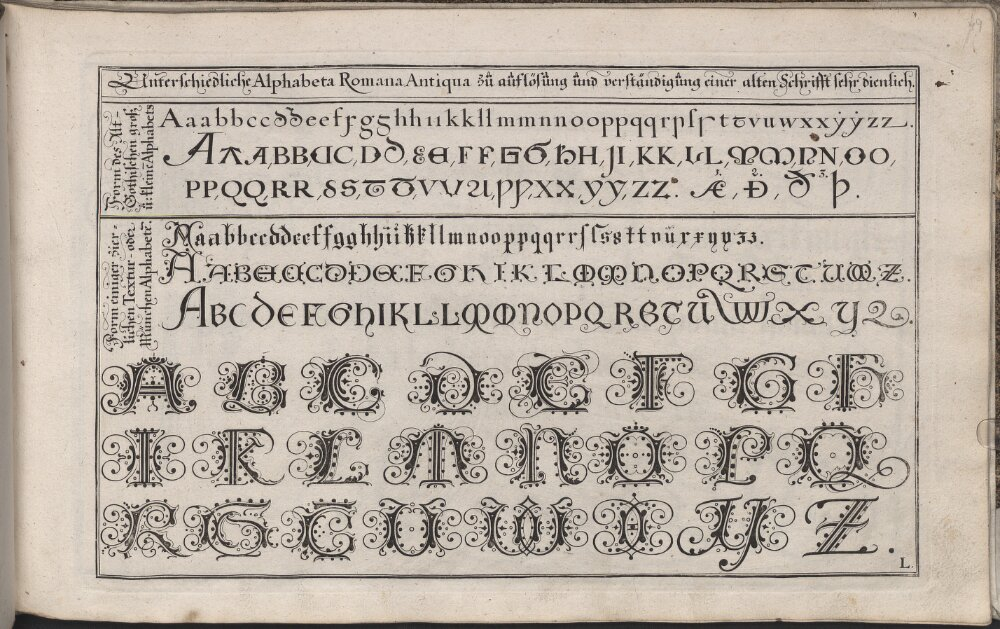 Unterschiedliche Alphabeta Romana Antiqua zů aůflösůng ůnd verständigůng einer alten Schrifft sehr dienlich.
Form des Alt-
Gothischen groß
ů: kleine Alphabets
A a a b b c c d d e e f f g g h h i i k k l l m m n n o o p p q q r r ſ ſ t t v u w x x ÿ ÿ z z.
A A A, B B C C, D D, E E, F F G G, H H, J I, K K, L L, M M, N N, O O,
P P, Q Q R R S S, T T, V V U, X X, Y Y, Z Z. 1. Æ, 2. Ð, 3. Þ.
Form einiger zier-
lichen Textur- oder
München Alphabete.
A a a b b c c d d e e f f g g h h i i k k l l m n o o p p q q r r ſ ſ s s t t v ü x x y y z z.
A A B C C D D E E F G H I K L M M N O P Q R S T U W Z.
A B C D E F G H I K L L M M N O P Q R S T U W X Y Z.
A B C D E F G H
I K L M N O P Q
R S T U W X Y Z.
L.